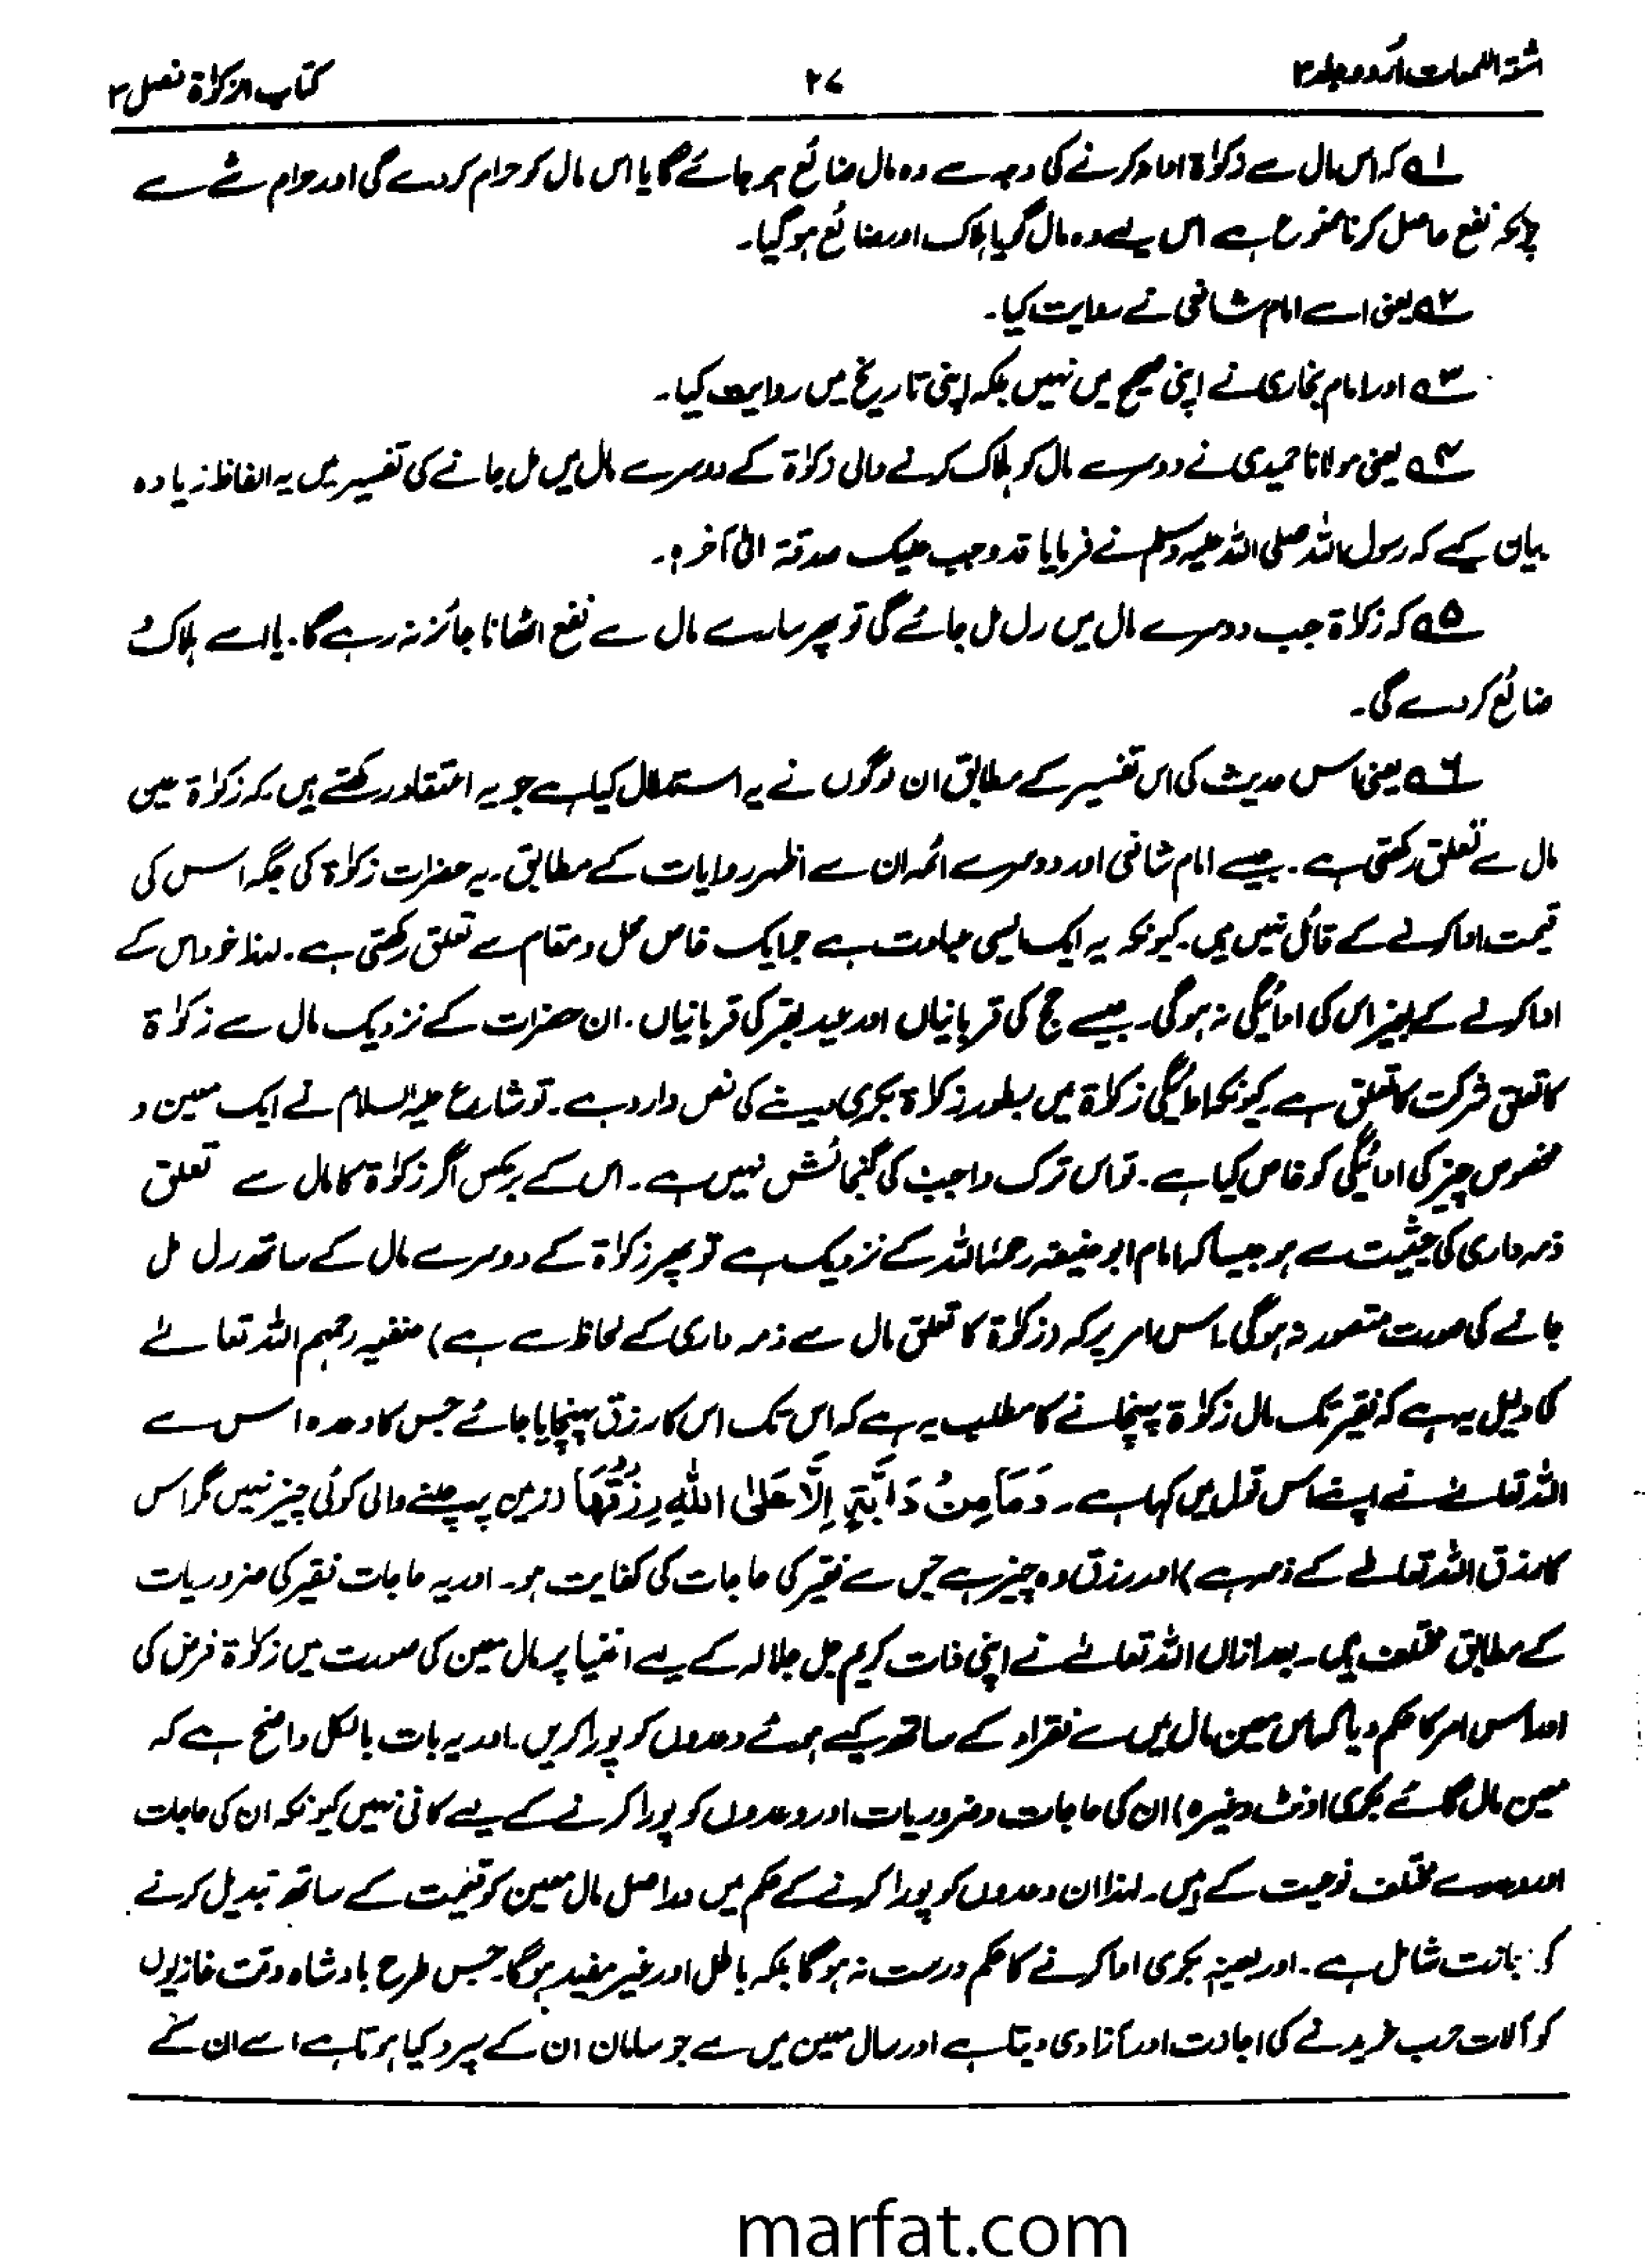 اشعۃ اللمعات اُردو جلد ۳
۲۷
کتاب الزکوٰۃ فصل ۲
۱؎ کہ اس مال سے زکوٰۃ ادا نہ کرنے کی وجہ سے وہ مال ضائع ہو جائے گا یا اس مال کو حرام کر دے گی اور حرام شے سے
چونکہ نفع حاصل کرنا ممنوع ہے اس لیے وہ مال گویا ہلاک اور ضائع ہو گیا۔
۲؎ یعنی اسے امام شافعی نے روایت کیا۔
۳؎ اور امام بخاری نے اپنی صحیح میں نہیں بلکہ اپنی تاریخ میں روایت کیا۔
۴؎ یعنی مولانا حمیدی نے دوسرے مال کو ہلاک کرنے والی زکوٰۃ کے دوسرے مال میں مل جانے کی تفسیر میں یہ الفاظ زیادہ
بیان کیے کہ رسول اللہ صلی اللہ علیہ وسلم نے فرمایا قد وجب علیک صدقۃ الیٰ آخرہ۔
۵؎ کہ زکوٰۃ جب دوسرے مال میں رل مل جائے گی تو پھر سارے مال سے نفع اٹھانا جائز نہ رہے گا۔ یا اسے ہلاک و
ضائع کر دے گی۔
۶؎ یعنی اس حدیث کی اس تفسیر کے مطابق ان لوگوں نے یہ استدلال کیا ہے جو یہ اعتقاد رکھتے ہیں کہ زکوٰۃ عین
مال سے تعلق رکھتی ہے۔ جیسے امام شافعی اور دوسرے ائمہ ان سے اظہر روایات کے مطابق۔ یہ حضرات زکوٰۃ کی جگہ اس کی
قیمت ادا کرنے کے قائل نہیں ہیں۔ کیونکہ یہ ایک ایسی عبادت ہے جو ایک خاص محل و مقام سے تعلق رکھتی ہے۔ لہٰذا خود اس کے
ادا کرنے کے بغیر اس کی ادائیگی نہ ہوگی۔ جیسے حج کی قربانیاں اور عید بقر کی قربانیاں۔ ان حضرات کے نزدیک مال سے زکوٰۃ
کا تعلق شرکت کا تعلق ہے کیونکہ ادائیگی زکوٰۃ میں بطور زکوٰۃ بکری دینے کی نص وارد ہے۔ تو شارع علیہ السلام نے ایک معین و
مخصوص چیز کی ادائیگی کو خاص کیا ہے۔ تو اس ترک واجب کی گنجائش نہیں ہے۔ اس کے برعکس اگر زکوٰۃ کا مال سے تعلق
ذمہ داری کی حیثیت سے ہو جیسا کہ امام ابو حنیفہ رحمۃ اللہ کے نزدیک ہے تو پھر زکوٰۃ کے دوسرے مال کے ساتھ رل مل
جانے کی صورت متصور نہ ہوگی۔ اس امر پر کہ (زکوٰۃ کا تعلق مال سے ذمہ داری کے لحاظ سے ہے) حنفیہ رحمہم اللہ تعالےٰ
کی دلیل یہ ہے کہ فقیر تک مال زکوٰۃ پہنچانے کا مطلب یہ ہے کہ اس تک اس کا رزق پہنچایا جائے جس کا وعدہ اس سے
اللہ تعالےٰ نے اپنے اس قول میں کہا ہے۔ وَمَا مِنْ دَآبَّۃٍ اِلَّا عَلَی اللّٰہِ رِزْقُھَا (زمین پہ چلنے والی کوئی چیز نہیں مگر اس
کا رزق اللہ تعالےٰ کے ذمہ ہے) اور رزق وہ چیز ہے جس سے فقیر کی حاجات کی کفایت ہو۔ اور یہ حاجات فقیر کی ضروریات
کے مطابق مختلف ہیں۔ بعد ازاں اللہ تعالےٰ نے اپنی ذات کریم جل جلالہ کے لیے اغنیا پر مال معین کی صورت میں زکوٰۃ فرض کی
اور اس امر کا حکم دیا کہ اس معین مال میں سے فقراء کے ساتھ کیے ہوئے وعدوں کو پورا کریں۔ اور یہ بات بالکل واضح ہے کہ
معین مال گائے بکری اونٹ وغیرہ) ان کی حاجات و ضروریات اور وعدوں کو پورا کرنے کے لیے کافی نہیں کیونکہ ان کی حاجات
اور وعدے مختلف نوعیت کے ہیں۔ لہٰذا ان وعدوں کو پورا کرنے کے حکم میں دراصل مال معین کو قیمت کے ساتھ تبدیل کرنے
کی اجازت شامل ہے۔ اور بعینہٖ بکری ادا کرنے کا حکم درست نہ ہوگا بلکہ باطل اور غیر مفید ہوگا۔ جس طرح بادشاہ وقت غازیوں
کو آلات حرب خریدنے کی اجازت اور آزادی دیتا ہے اور مال معین میں سے جو سامان ان کے سپرد کیا ہوتا ہے اسے ان کے
marfat.com